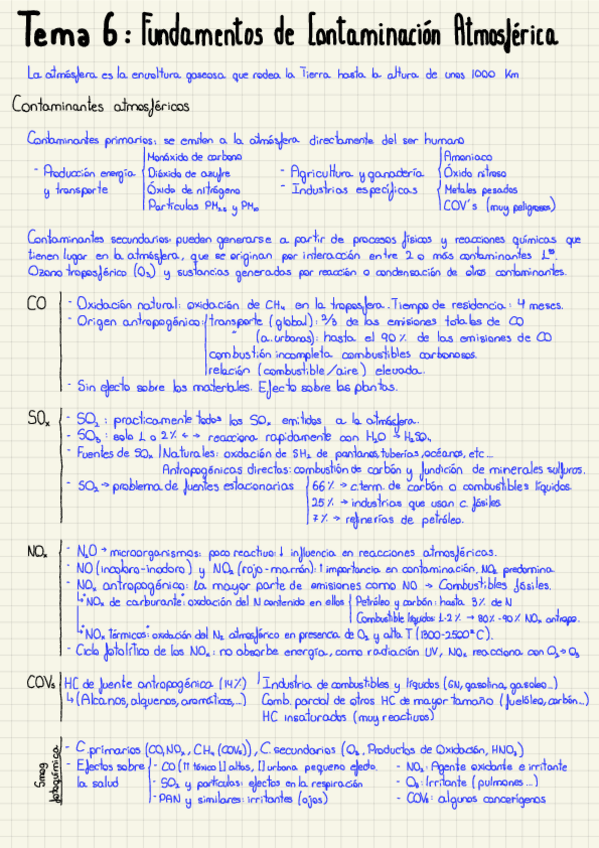 Tema 6: Fundamentos de Contaminación Atmosférica
La atmósfera es la envoltura gaseosa que rodea la Tierra hasta la altura de unos 1000 Km
Contaminantes atmosféricos
Contaminantes primarios: se emiten a la atmósfera directamente del ser humano
- Producción energía y transporte
Monóxido de carbono
Dióxido de azufre
Óxido de nitrógeno
Partículas PM2.5 y PM10
- Agricultura y ganadería
- Industrias específicas
Amoniaco
Óxido nitroso
Metales pesados
COV's (muy peligrosos)
Contaminantes secundarios: pueden generarse a partir de procesos físicos y reacciones químicas que
tienen lugar en la atmósfera, que se originan por interacción entre 2 o más contaminantes 1os
Ozono troposférico (O3) y sustancias generadas por reacción o condensación de otros contaminantes.
CO
- Oxidación natural: oxidación de CH4 en la troposfera. Tiempo de residencia: 4 meses.
- Origen antropogénico: transporte (global): 2/3 de las emisiones totales de CO
" (a. urbanas): hasta el 90% de las emisiones de CO
combustión incompleta combustibles carbonosos.
relación (combustible/aire) elevada.
- Sin efecto sobre los materiales. Efecto sobre las plantas.
SOx
- SO2: practicamente todos los SOx emitidos a la atmósfera.
- SO3: solo 1 o 2% ← → reacciona rapidamente con H2O → H2SO4
- Fuentes de SOx Naturales: oxidación de SH2 de pantanos, tuberías, océanos, etc...
Antropogénicas directas: combustión de carbón y fundición de minerales sulfuros.
- SO2 → problema de fuentes estacionarias
66% → c. term. de carbón o combustibles líquidos.
25% → industrias que usan c. fósiles
7% → refinerías de petróleo.
NOx
- N2O → microorganismos: poco reactivo: ↓ influencia en reacciones atmosféricas.
- NO (incoloro-inodoro) y NO2 (rojo-marrón): ↑ importancia en contaminación, NO2 predomina
- NOx antropogénico: La mayor parte de emisiones como NO → Combustibles fósiles.
↳ "NOx de carburante": oxidación del N contenido en ellos
Petróleo y carbón: hasta 3% de N
Combustible líquidos: 1-2% → 80%-90% NOx antropo.
↳ "NOx térmicos": oxidación del N2 atmosférico en presencia de O2 y alta T (1300-2500ºC).
- Ciclo fotolítico de los NOx: no absorbe energía, como radiación UV, NOx reacciona con O2 → O3
COVs
HC de fuente antropogénica (14%)
↳ (Alcanos, alquenos, aromáticos,...)
Industria de combustibles y líquidos (GN, gasolina, gasoleo...)
Comb. parcial de otros HC de mayor tamaño (fuelóleo, carbón...)
HC insaturados (muy reactivos)
Smog fotoquímico
- C. primarios (CO, NOx, CH4 (COVs)), C. secundarios (O3, Productos de Oxidación, HNO3)
- Efectos sobre la salud
- CO (↑↑ tóxico [] altas, [] urbana pequeño efecto.
- SO2 y partículas: efectos en la respiración
- PAN y similares: irritantes (ojos)
- NO2: Agente oxidante e irritante
- O3: Irritante (pulmones...)
- COVs: algunos cancerígenos